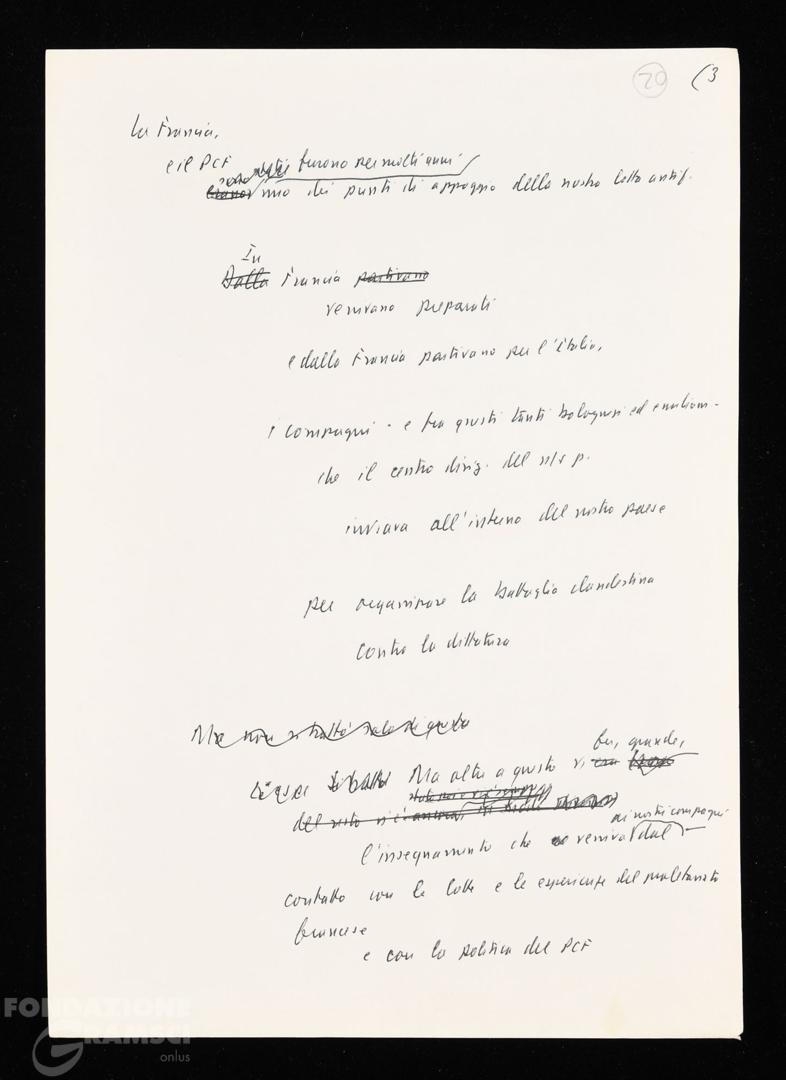 20 (3
La Francia,
e il PCF furono per molti anni
uno dei punti di appoggio della nostra lotta antif.
In
Dalla Francia partivano
venivano preparati
e dalla Francia partivano per l'Italia,
i compagni - e fra questi tanti bolognesi ed emiliani -
che il centro dirig. del n/s p.
inviava all'interno del nostro paese
per organizzare la battaglia clandestina
contro la dittatura
Ma non si trattò solo di questo
fu, grande,
Ma oltre a questo vi era
del resto vi è ancora,
ai nostri compagni
l'insegnamento che veniva dal
contatto con le lotte e le esperienze del proletariato
francese
e con la politica del PCF
FONDAZIONE
GRAMSCI
onlus